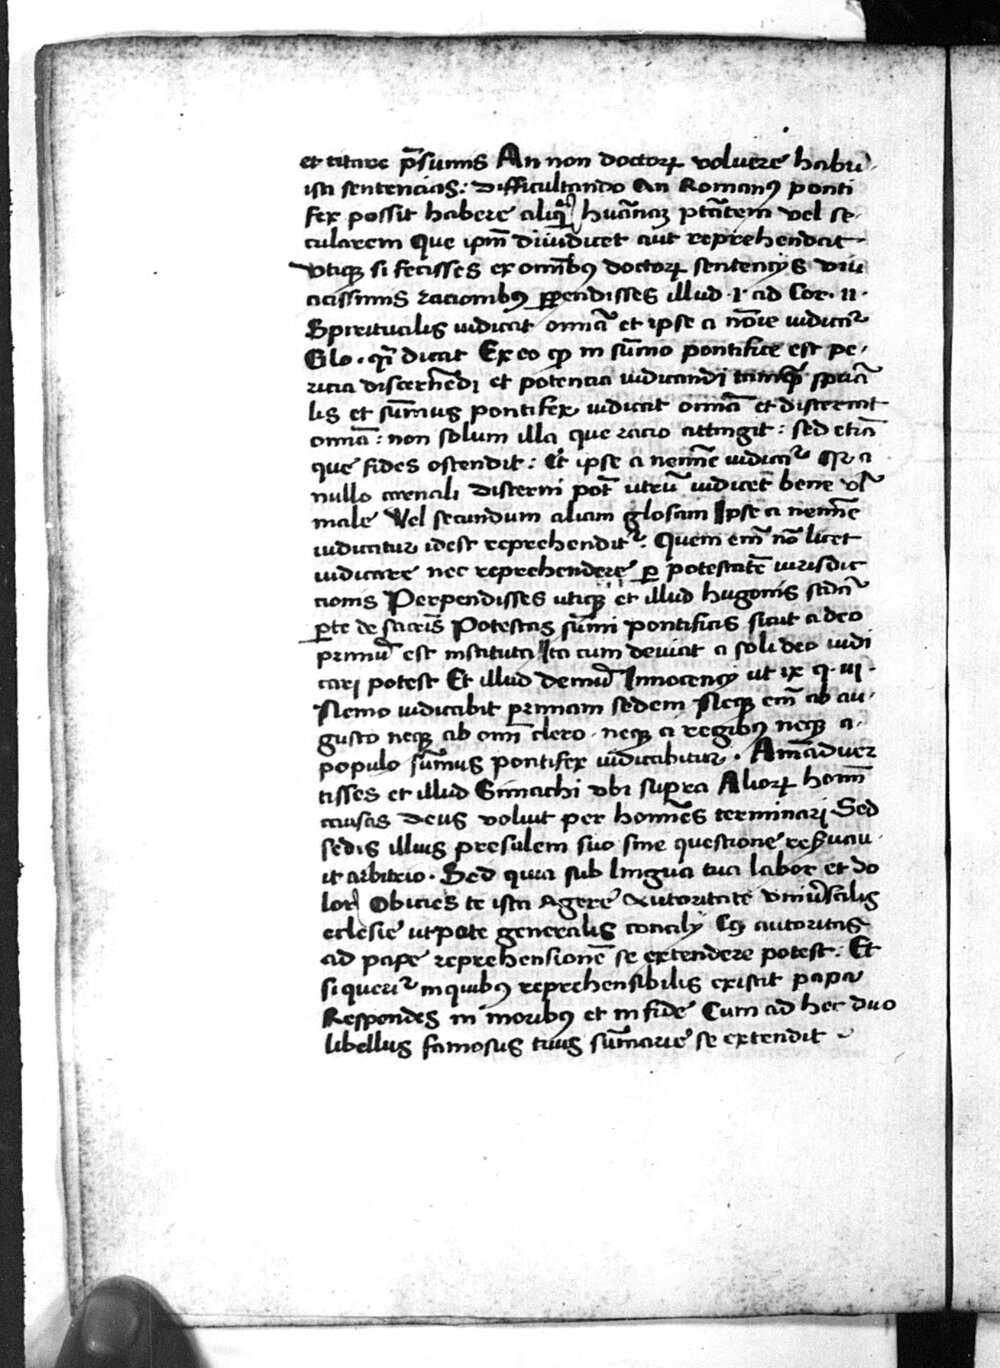 et citare p̄sumis An non doctorꝝ voluere habu
isti sentencias: difficultando An Romanꝰ ponti
fex possit habere aliquā huānaꝫ ptātem vel se-
cularem que ipm̄ diiudicet aut reprehendat
vtiqꝫ si fecisses ex omībꝰ doctorꝝ sentencijs viu
acissimis racionibꝰ ꝑpendisses illud ·1· ad Cor· 11·
Spiritualis iudicat omīa et ipse a nōīe iudicat᷑
Glo · qr̄ dicat Ex eo ꝙ in sūmo pontifice est pe-
ricia discernēdi et potencia iudicandi tamqꝫ spūa
lis et sūmus pontifex iudicat omīa et discernit
omīa: non solum illa que racio attingit: sed etiā
que fides ostendit: Et ipse a nemīe iudicat᷑ Qr a
nullo carnali discerni pot̄ utrū iudicet bene vl̄
male Vel secundum aliam glosam Ipse a nemīe
iudicatur idest reprehendit᷑: Quem em̄ nō licet
iudicare nec reprehendere ꝑ potestatē iurisdic
cionis Perpendisses utiqꝫ et illud hugonis scdā
ꝑte de sacrīs Potestas sūmi pontificis sicut a deo
primū est instituta Ita cum deuiat a soli deo iudi
cari potest Et illud demū Innocencij ut ix q· iii·
Nemo iudicabit primam sedem Neqꝫ em̄ ab au-
gusto neqꝫ ab omī clero · neqꝫ a regibꝰ neqꝫ a-
populo sūmus pontifex iudicabitur · Amīaduer
tisses et illud Simachi vbi supra Aliorꝝ homī
causas deus voluit per homīes terminari Sed
sedis illius presulem suo sine questione res̄uau
it arbitrio · Sed quia sub lingua tua labor et do
lor Obicies te ista Agere Autoritate vniūsalis
eclesie utpote generalis concilij Cꝰ autoritas
ad pape reprehensionē se extendere potest: Et
si querit᷑ in quibꝰ reprehensibilis existit papa
Respondes in moribꝰ et in fide Cum ad hec duo
libellus famosus tuus sūmarie se extendit